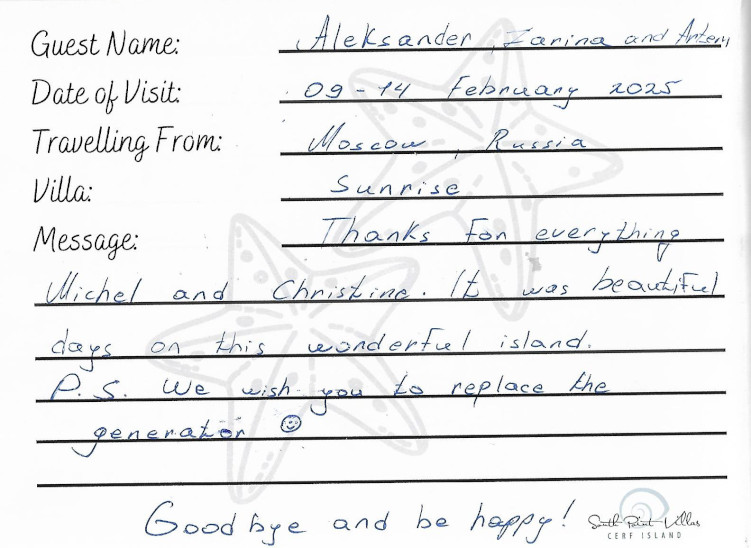 Guest Name: Aleksander, Zarina and Artem
Date of Visit: 09-14 February 2025
Travelling From: Moscow, Russia
Villa: Sunrise
Message: Thanks for everything
Michel and Christine. It was beautiful
days on this wonderful island.
P.S. We wish you to replace the
generator ☺
Good bye and be happy!
South Point Villas
CERF ISLAND